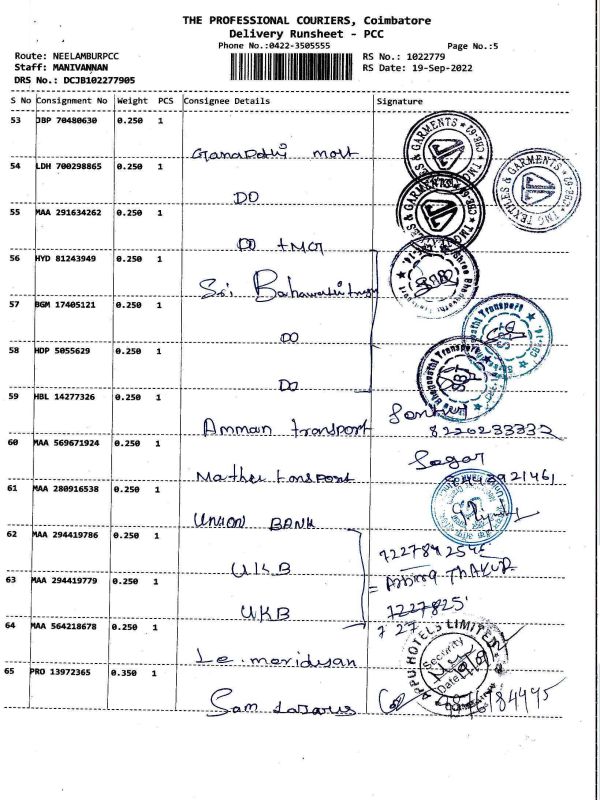 THE PROFESSIONAL COURIERS, Coimbatore
Delivery Runsheet - PCC
Phone No.:0422-3505555 Page No.:5
Route: NEELAMBURPCC RS No.: 1022779
Staff: MANIVANNAN RS Date: 19-Sep-2022
DRS No.: DCJB102277905
S No Consignment No Weight PCS Consignee Details Signature
53 JBP 70480630 0.250 1
54 LDH 700298865 0.250 1
DO
55 MAA 291634262 0.250 1
DO TMG
56 HYD 81243949 0.250 1
Sri
57 BGM 17405121 0.250 1
DO
58 HDP 5055629 0.250 1
DO
59 HBL 14277326 0.250 1
Amman transport 8220233332
60 MAA 569671924 0.250 1
Sagar
61 MAA 280916538 0.250 1
UNION BANK
62 MAA 294419786 0.250 1
UKB
63 MAA 294419779 0.250 1
UKB
64 MAA 564218678 0.250 1
Le meridian
APPU HOTELS LIMITED
Security
Date
65 PRO 13972365 0.350 1
Sam Lazarus